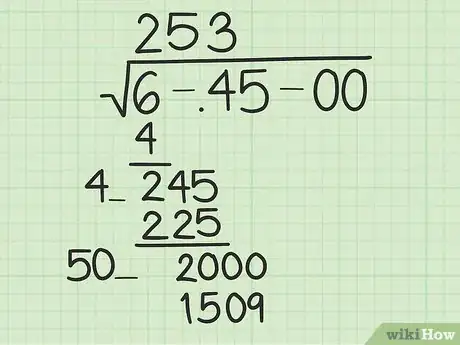 253
√6-.45-00
4
4_ 245
225
50_ 2000
1509
wikiHow